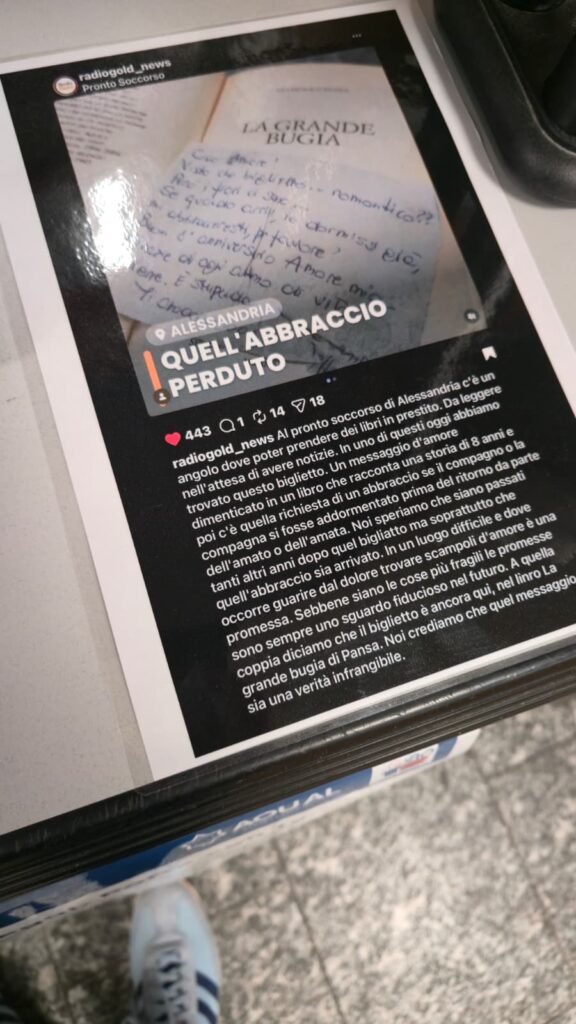 radiogold_news
Pronto Soccorso
LA GRANDE
BUGIA
Ciao Amore!
Visto che bigliettino... romantico??
Per i fiori ci sarà
Se quando arrivi io dormissi già,
abbracciami, per favore!
Buon 8° anniversario Amore mio
di ogni anno di vita
È stupendo
Ti
ALESSANDRIA
QUELL'ABBRACCIO
PERDUTO
443 1 14 18
radiogold_news Al pronto soccorso di Alessandria c'è un
angolo dove poter prendere dei libri in prestito. Da leggere
nell'attesa di avere notizie. In uno di questi oggi abbiamo
trovato questo biglietto. Un messaggio d'amore
dimenticato in un libro che racconta una storia di 8 anni e
poi c'è quella richiesta di un abbraccio se il compagno o la
compagna si fosse addormentato prima del ritorno da parte
dell'amato o dell'amata. Noi speriamo che siano passati
tanti altri anni dopo quel bigliatto ma soprattutto che
quell'abbraccio sia arrivato. In un luogo difficile e dove
occorre guarire dal dolore trovare scampoli d'amore è una
promessa. Sebbene siano le cose più fragili le promesse
sono sempre uno sguardo fiducioso nel futuro. A quella
coppia diciamo che il biglietto è ancora qui, nel linro La
grande bugia di Pansa. Noi crediamo che quel messaggio
sia una verità infrangibile.
AQUAL